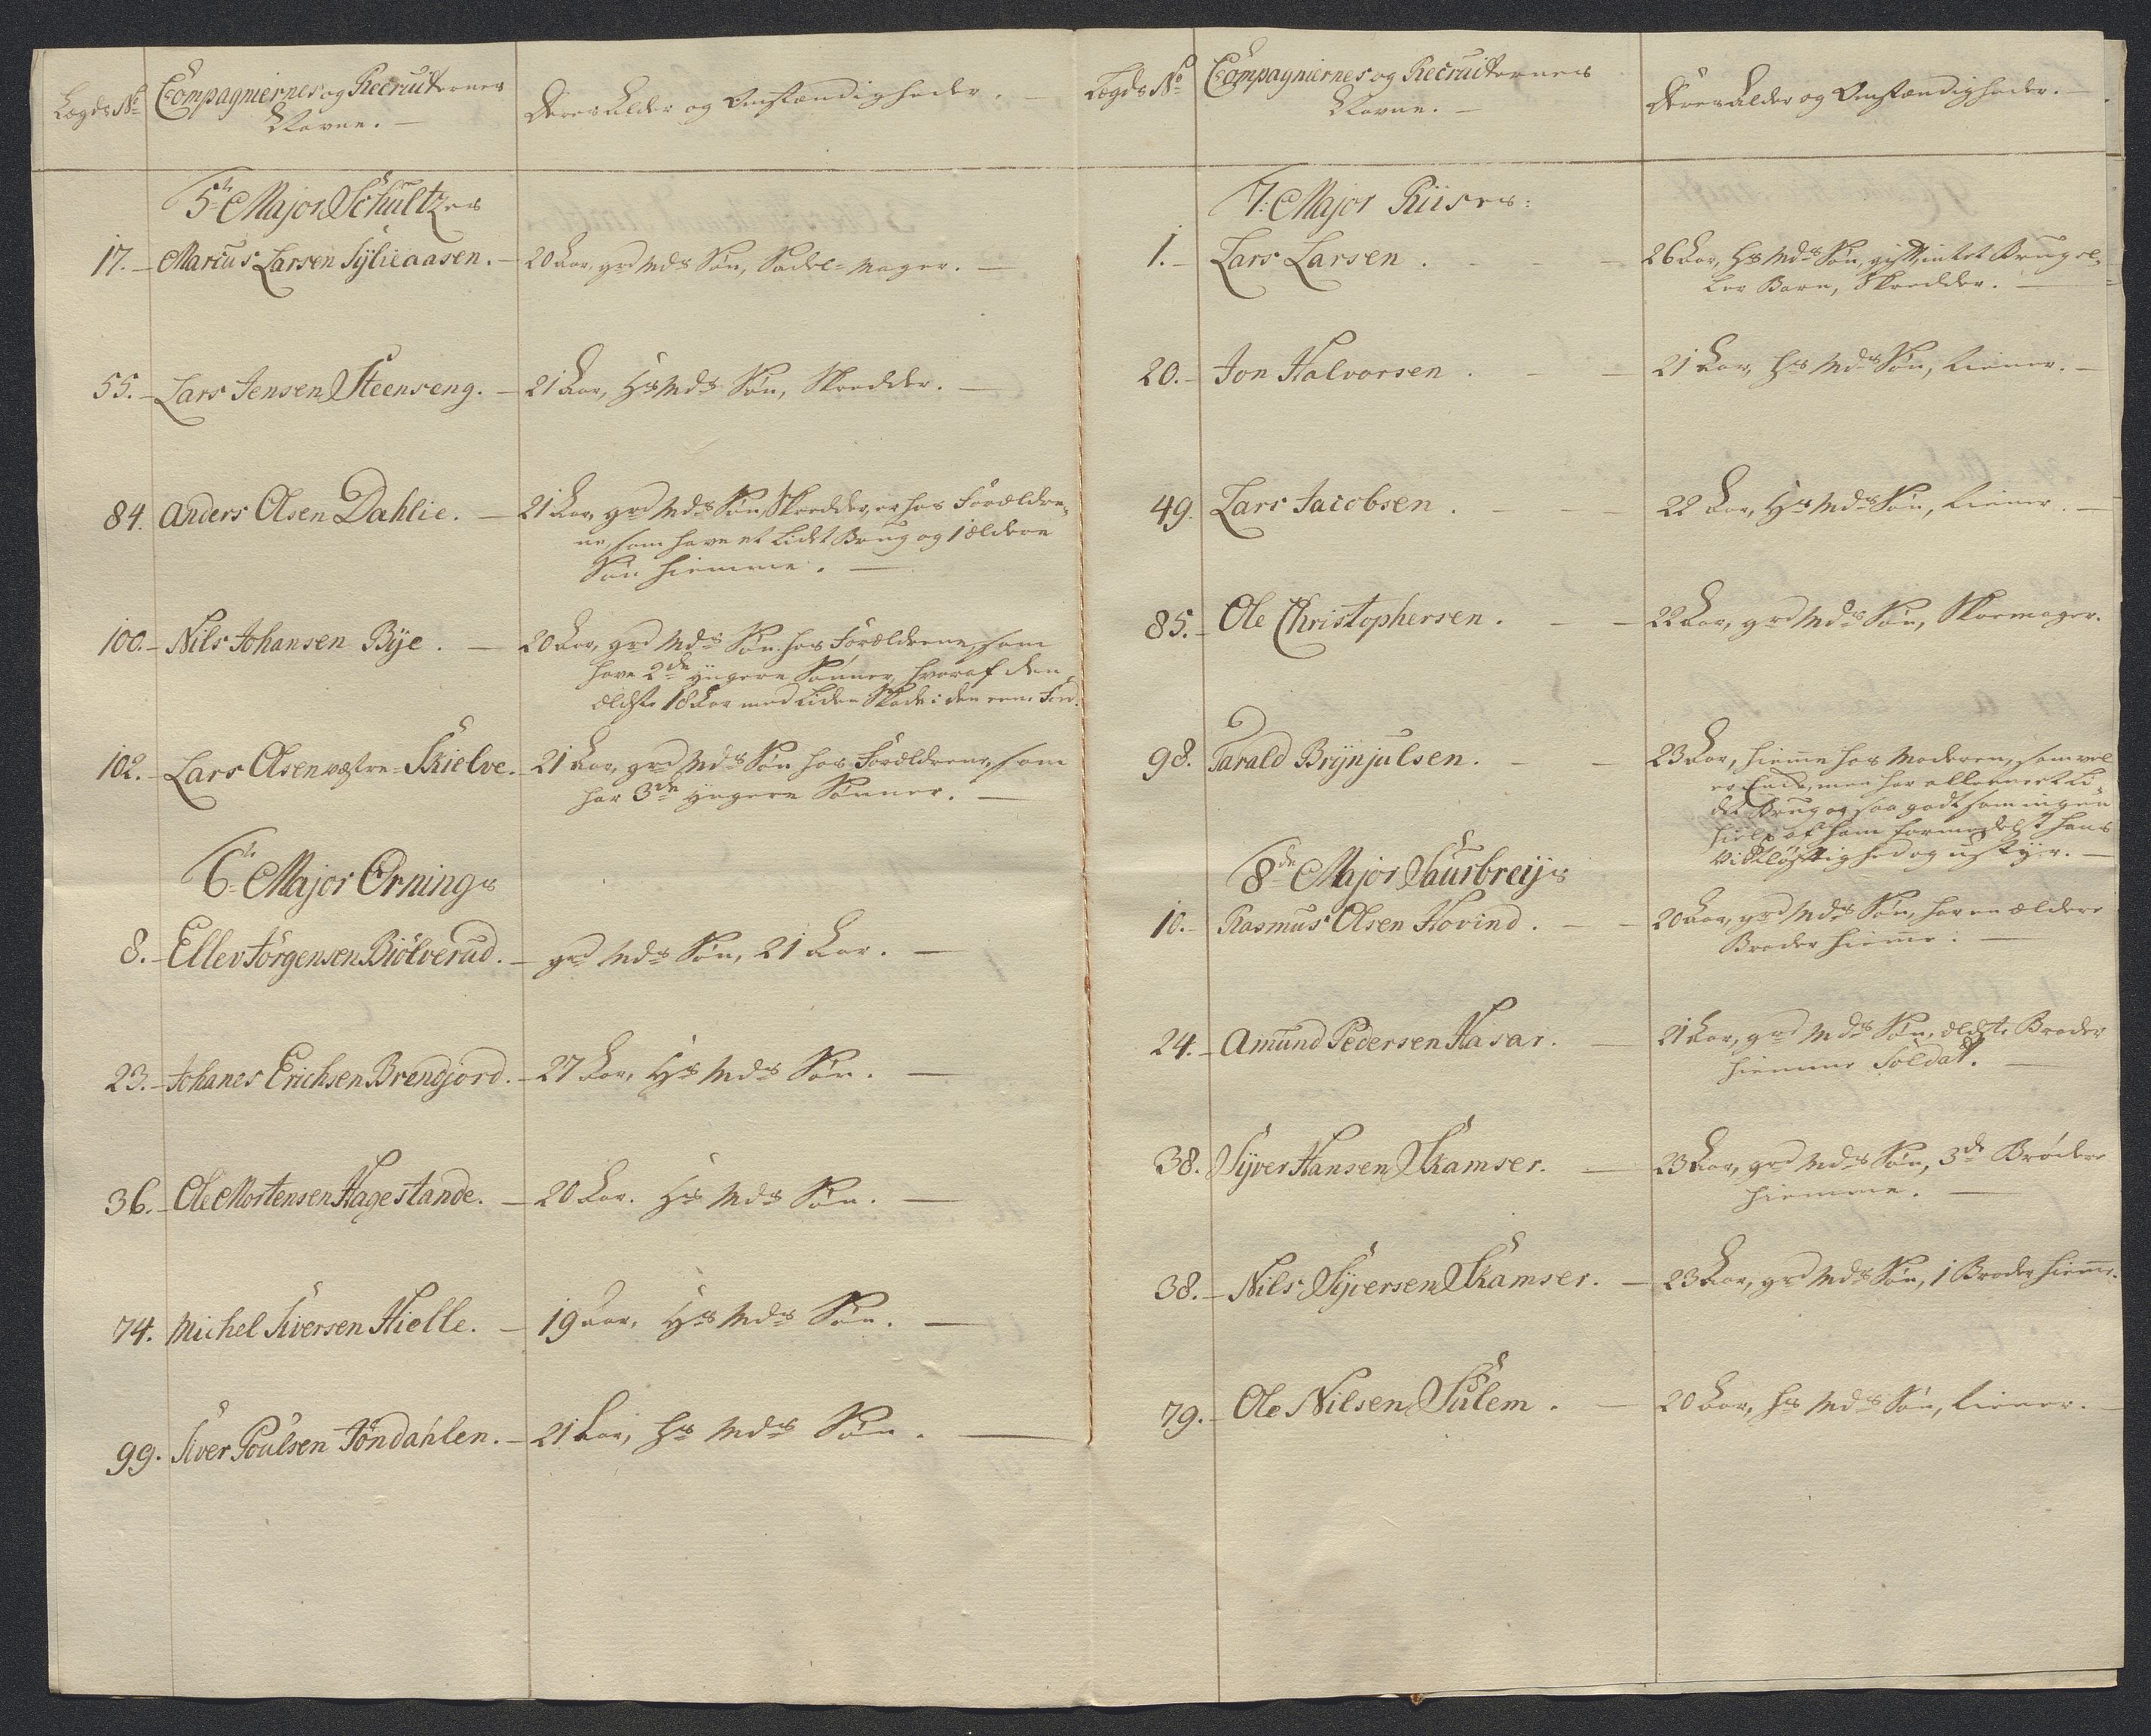 Lægds No
Compagniernes og Recruternes
Navne. —
Deres Alder og Omstændigheder. —
5te Major Schultzes
17. — Marcus Larsen Sylieaasen. — 20 Aar, grd Mds Søn, Sadel-mager. —
55. — Lars Jensen Steenseng. — 21 Aar, Hs Mds Søn, Skredder. —
84. Anders Olsen Dahlie. — 21 Aar, grd Mds Søn, Skredder, er hos Forældre-
ne, som have et Lidet Brug og 1 ældere
Søn hiemme. —
100. — Nils Johansen Bye. — 20 Aar, grd Mds Søn hos Forældrene, som
have 2de yngere Sønner, hvoraf den
ældste 18 Aar med Liden Skade i den eene Fod.
102. — Lars Olsen vestre-Skielve. — 21 Aar, grd Mds Søn hos Forældrene, som
har 3de yngere Sønner. —
6te Major Ornings
8. — Ellev Jörgensen Biölverud. — grd Mds Søn, 21 Aar. —
23. — Johanes Erichsen Brendjord. — 27 Aar, Hs Mds Søn. —
36. — Ole Mortensen Hagestande. — 20 Aar. Hs Mds Søn. —
74. Michel Siversen Hielle. — 19 Aar, Hs Mds Søn. —
99. Siver Poulsen Jöndahlen. — 21 Aar, Hs Mds Søn. —
Lægds No
Compagniernes og Recruternes
Navne. —
Deres Alder og Omstændigheder. —
7: Major Riises:
1. — Lars Larsen. — 26 Aar, Hs Mds Søn, gift, intet Brug el-
ler Barn, Skredder. —
20. — Jon Halvorsen. — 21 Aar, Hs Mds Søn, tiener. —
49. Lars Jacobsen. — 22 Aar, Hs Mds Søn, tiener. —
85. — Ole Christophersen. — 22 Aar, grd Mds Søn, Skoemager.
98. Tarald Brynjulsen. — 23 Aar, hieme hos Moderen, som vel
er Enke, men har alleenest Li-
det Brug og saa godt som ingen
hielp af ham formedelst hans
Vidtløftighed og ustyr. —
8de Major Saurbreijs
10. — Rasmus Olsen Hovind. — 20 Aar, grd Mds Søn, har en ældere
Broder hieme. —
24. — Amund Pedersen Hasar. — 21 Aar, grd Mds Søn, ældste Broder
hiemme Soldat. —
38. Syver Hansen Skamser. — 23 Aar, grd Mds Søn, 3de Brødere
hiemme. —
38. — Nils Syversen Skamser. — 23 Aar, grd Mds Søn, 1 Broder hieme.
79. — Ole Nilsen Sulem. — 20 Aar, Hs Mds Søn, tiener. —